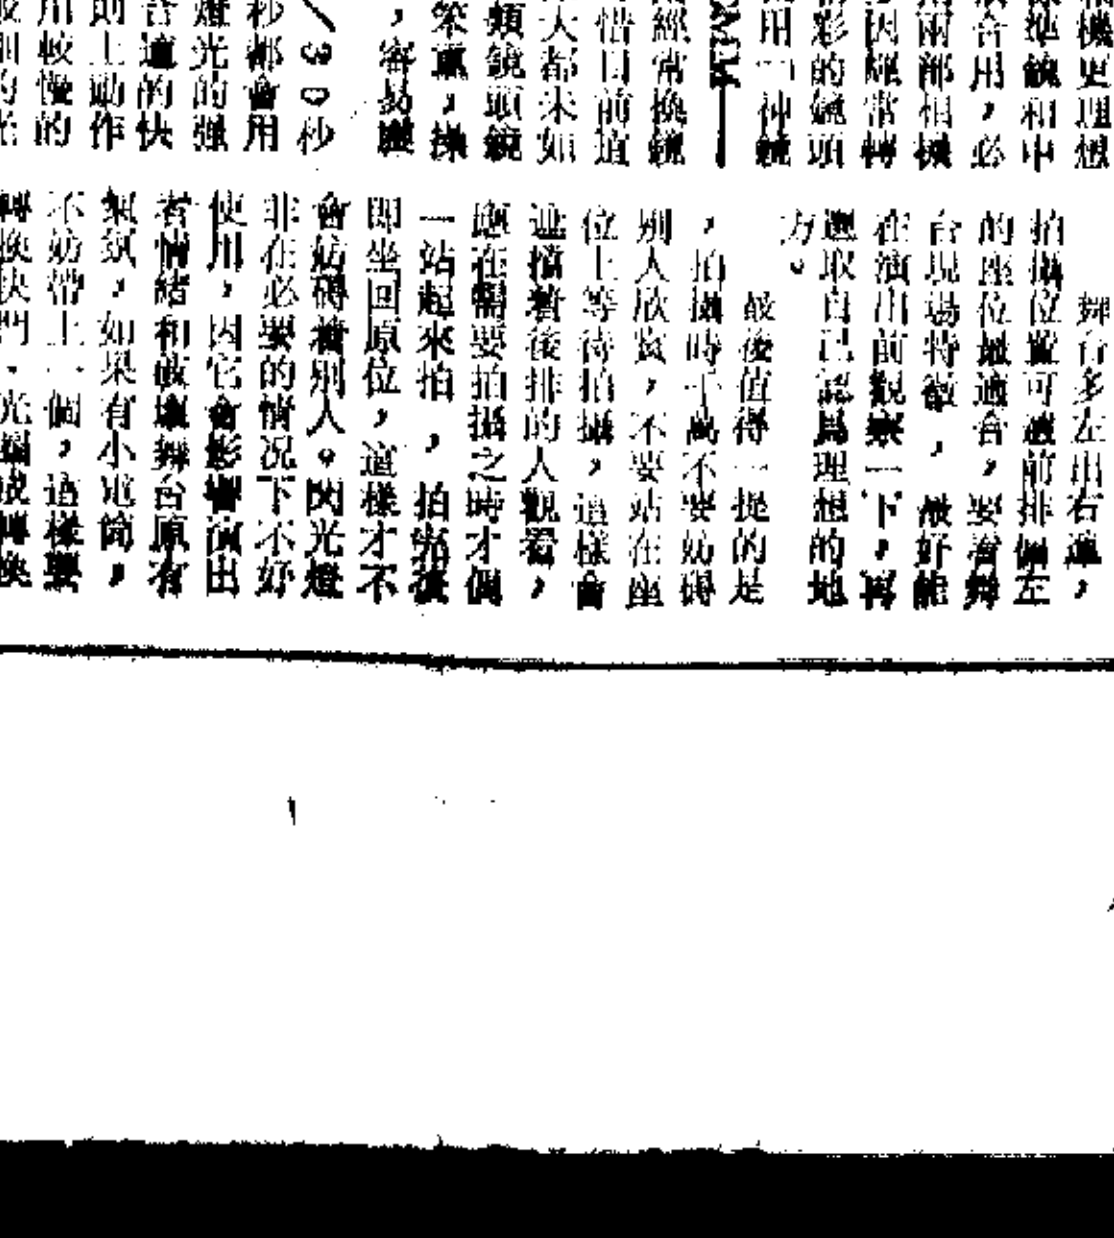 機更理想
準鏡和中
合用，必
兩部相機
因經常轉
彩的鏡頭
用一神鏡
經常換鏡
惜目前這
大都未如
類鏡頭鏡
笨重，操
，容易
／30秒
秒都會用
燈光的强
合適的快
則上動作
用較慢的
舞台多左出右進，
拍攝位置可選前排偏左
的座位最適合，要看舞
台現場特徵，最好能
在演出前觀察一下，再
選取自己認爲理想的地
方。
最後值得一提的是
，拍攝時千萬不要妨碍
別人欣賞，不要站在座
位上等待拍攝，這樣會
遮擋着後排的人觀看，
應在需要拍攝之時才偶
一站起來拍，拍完後
即坐回原位，這樣才不
會妨碍着別人。閃光燈
非在必要的情况下不好
使用，因它會影響演出
者情緒和破壞舞台原有
氣氛，如果有小電筒，
不妨帶上一個，這樣要
轉換快門、光圈或轉換